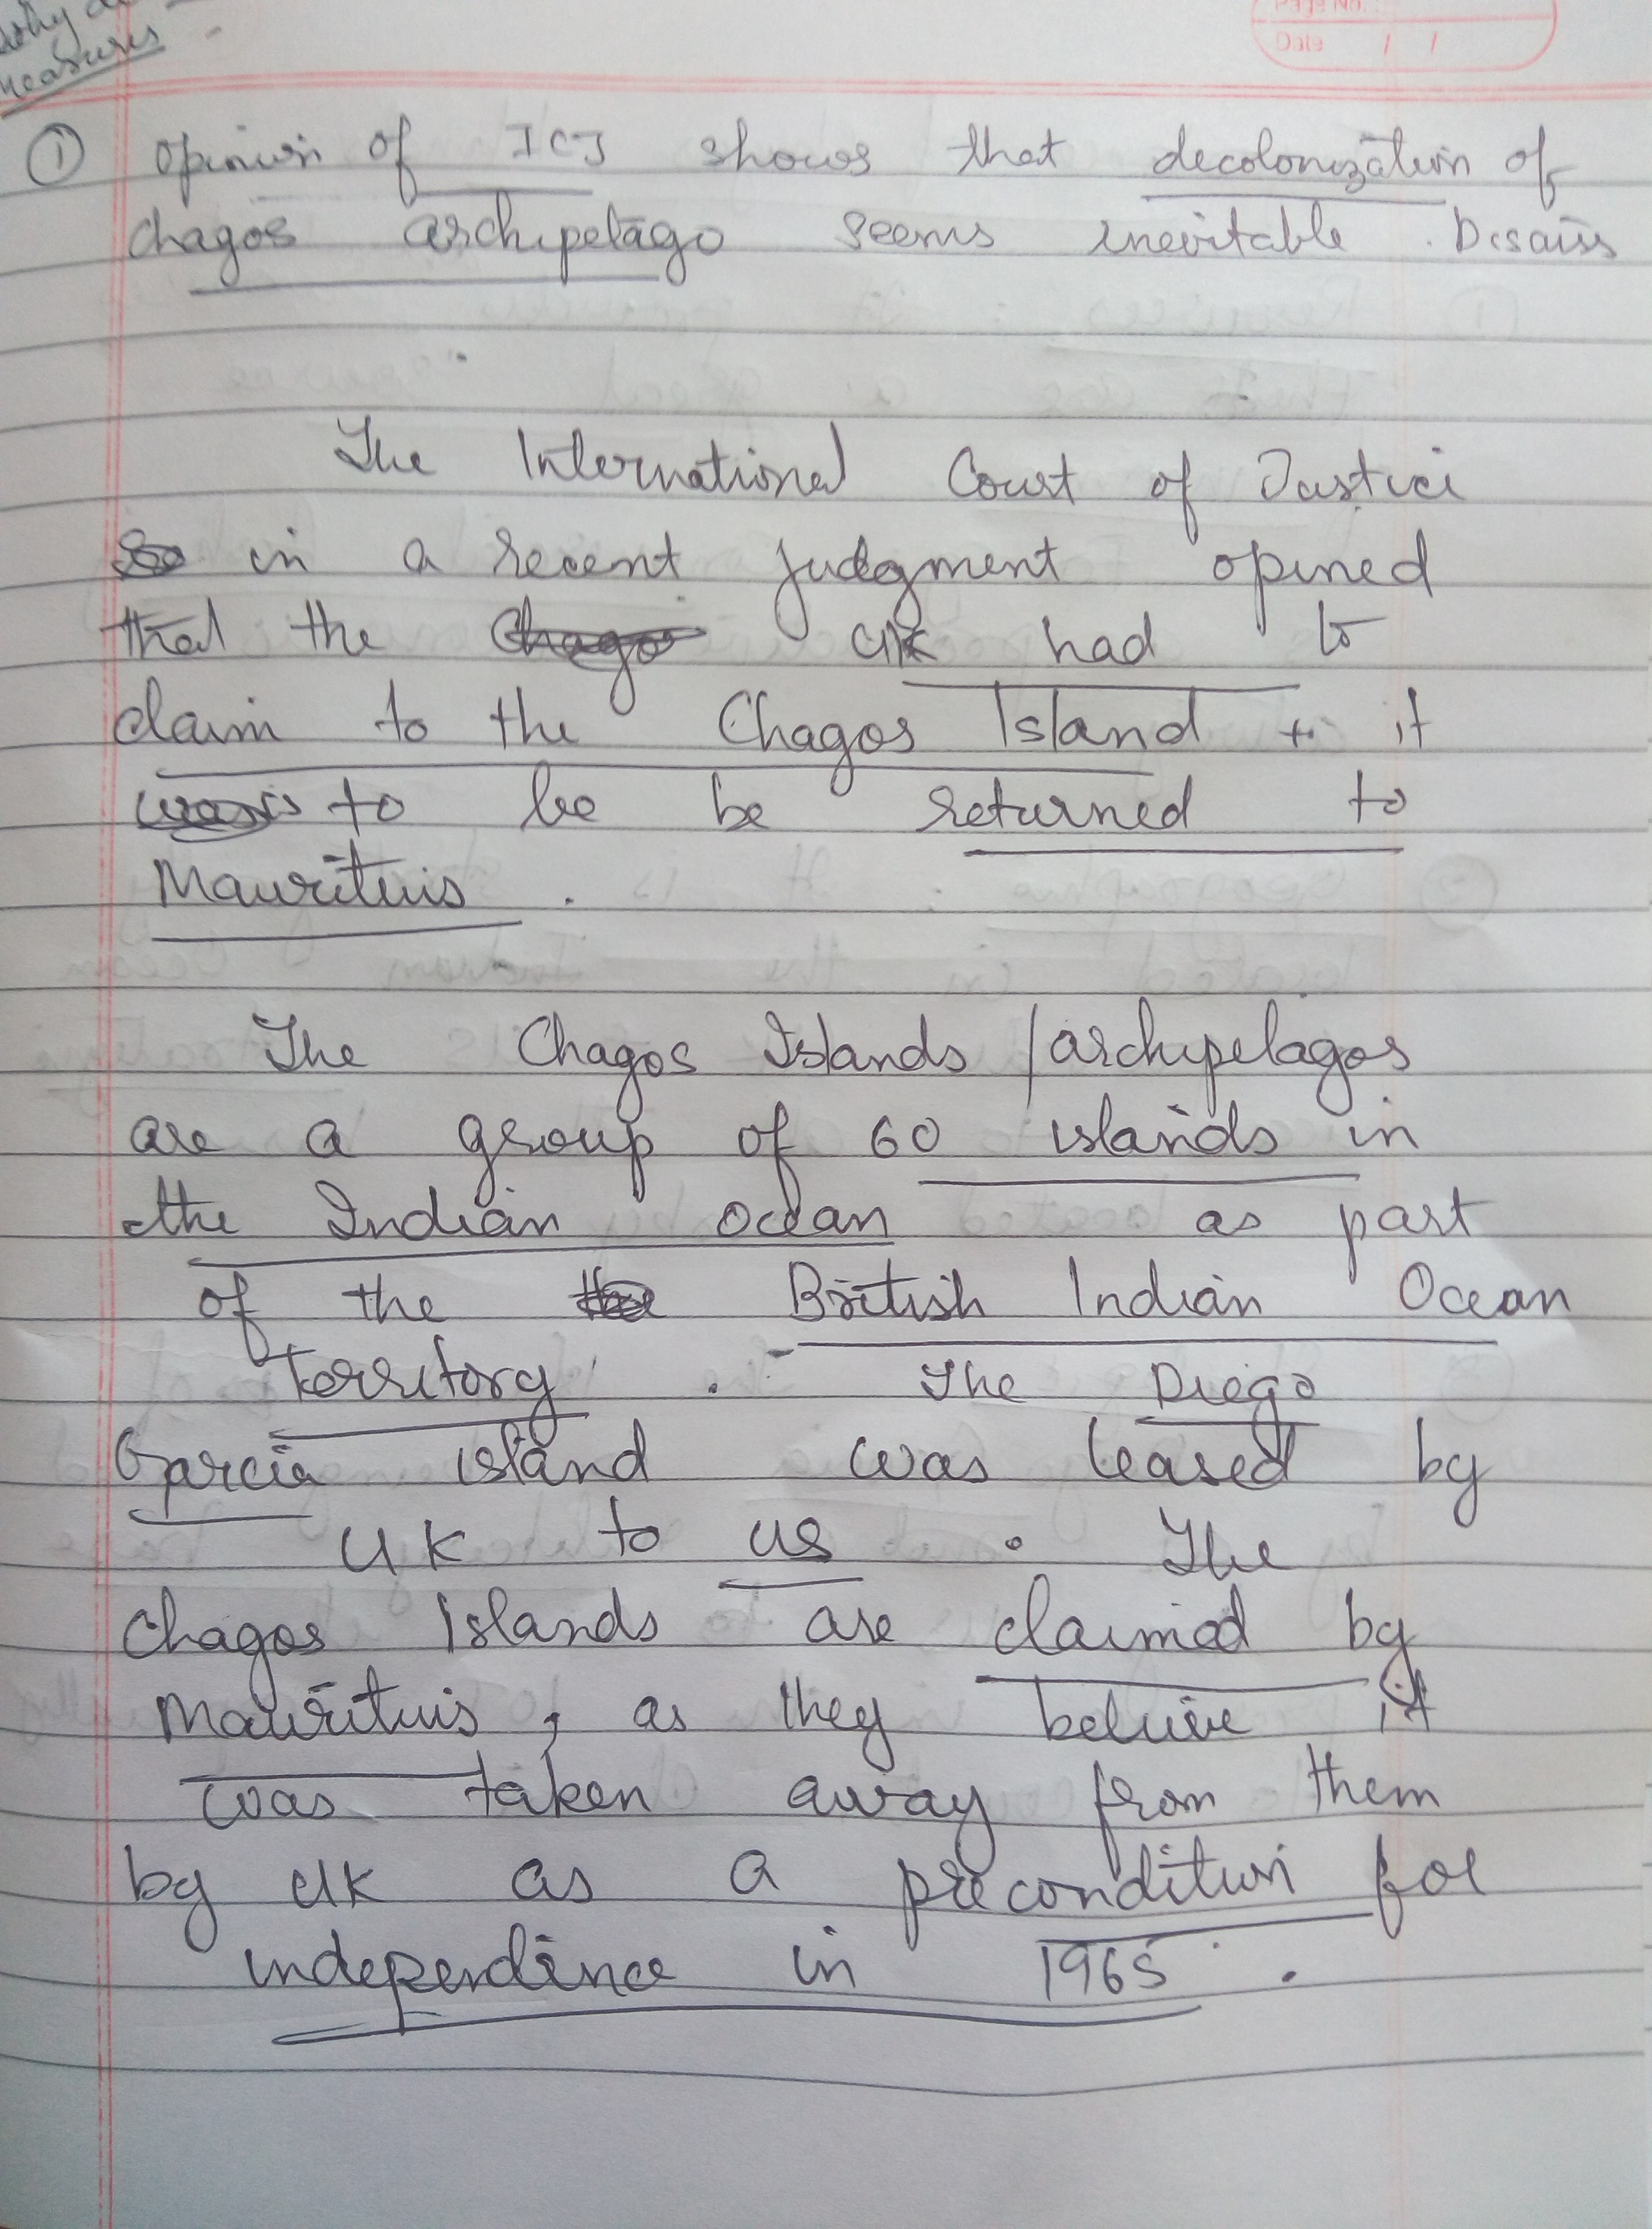 why
measures
Page No.
Date / /
① Opinion of ICJ shows that decolonization of
chagos archipelago seems inevitable. Discuss
The International Court of Justice
in a recent judgment opined
that the Chagos UK had to
claim to the Chagos Island + it
to be be returned to
Mauritius.
The Chagos Islands / archipelagos
are a group of 60 islands in
the Indian Ocean as part
of the the British Indian Ocean
Territory. The Diego
Garcia island was leased by
UK to US. The
Chagos Islands are claimed by
Mauritius, as they believe it
was taken away from them
by UK as a precondition for
independence in 1965.